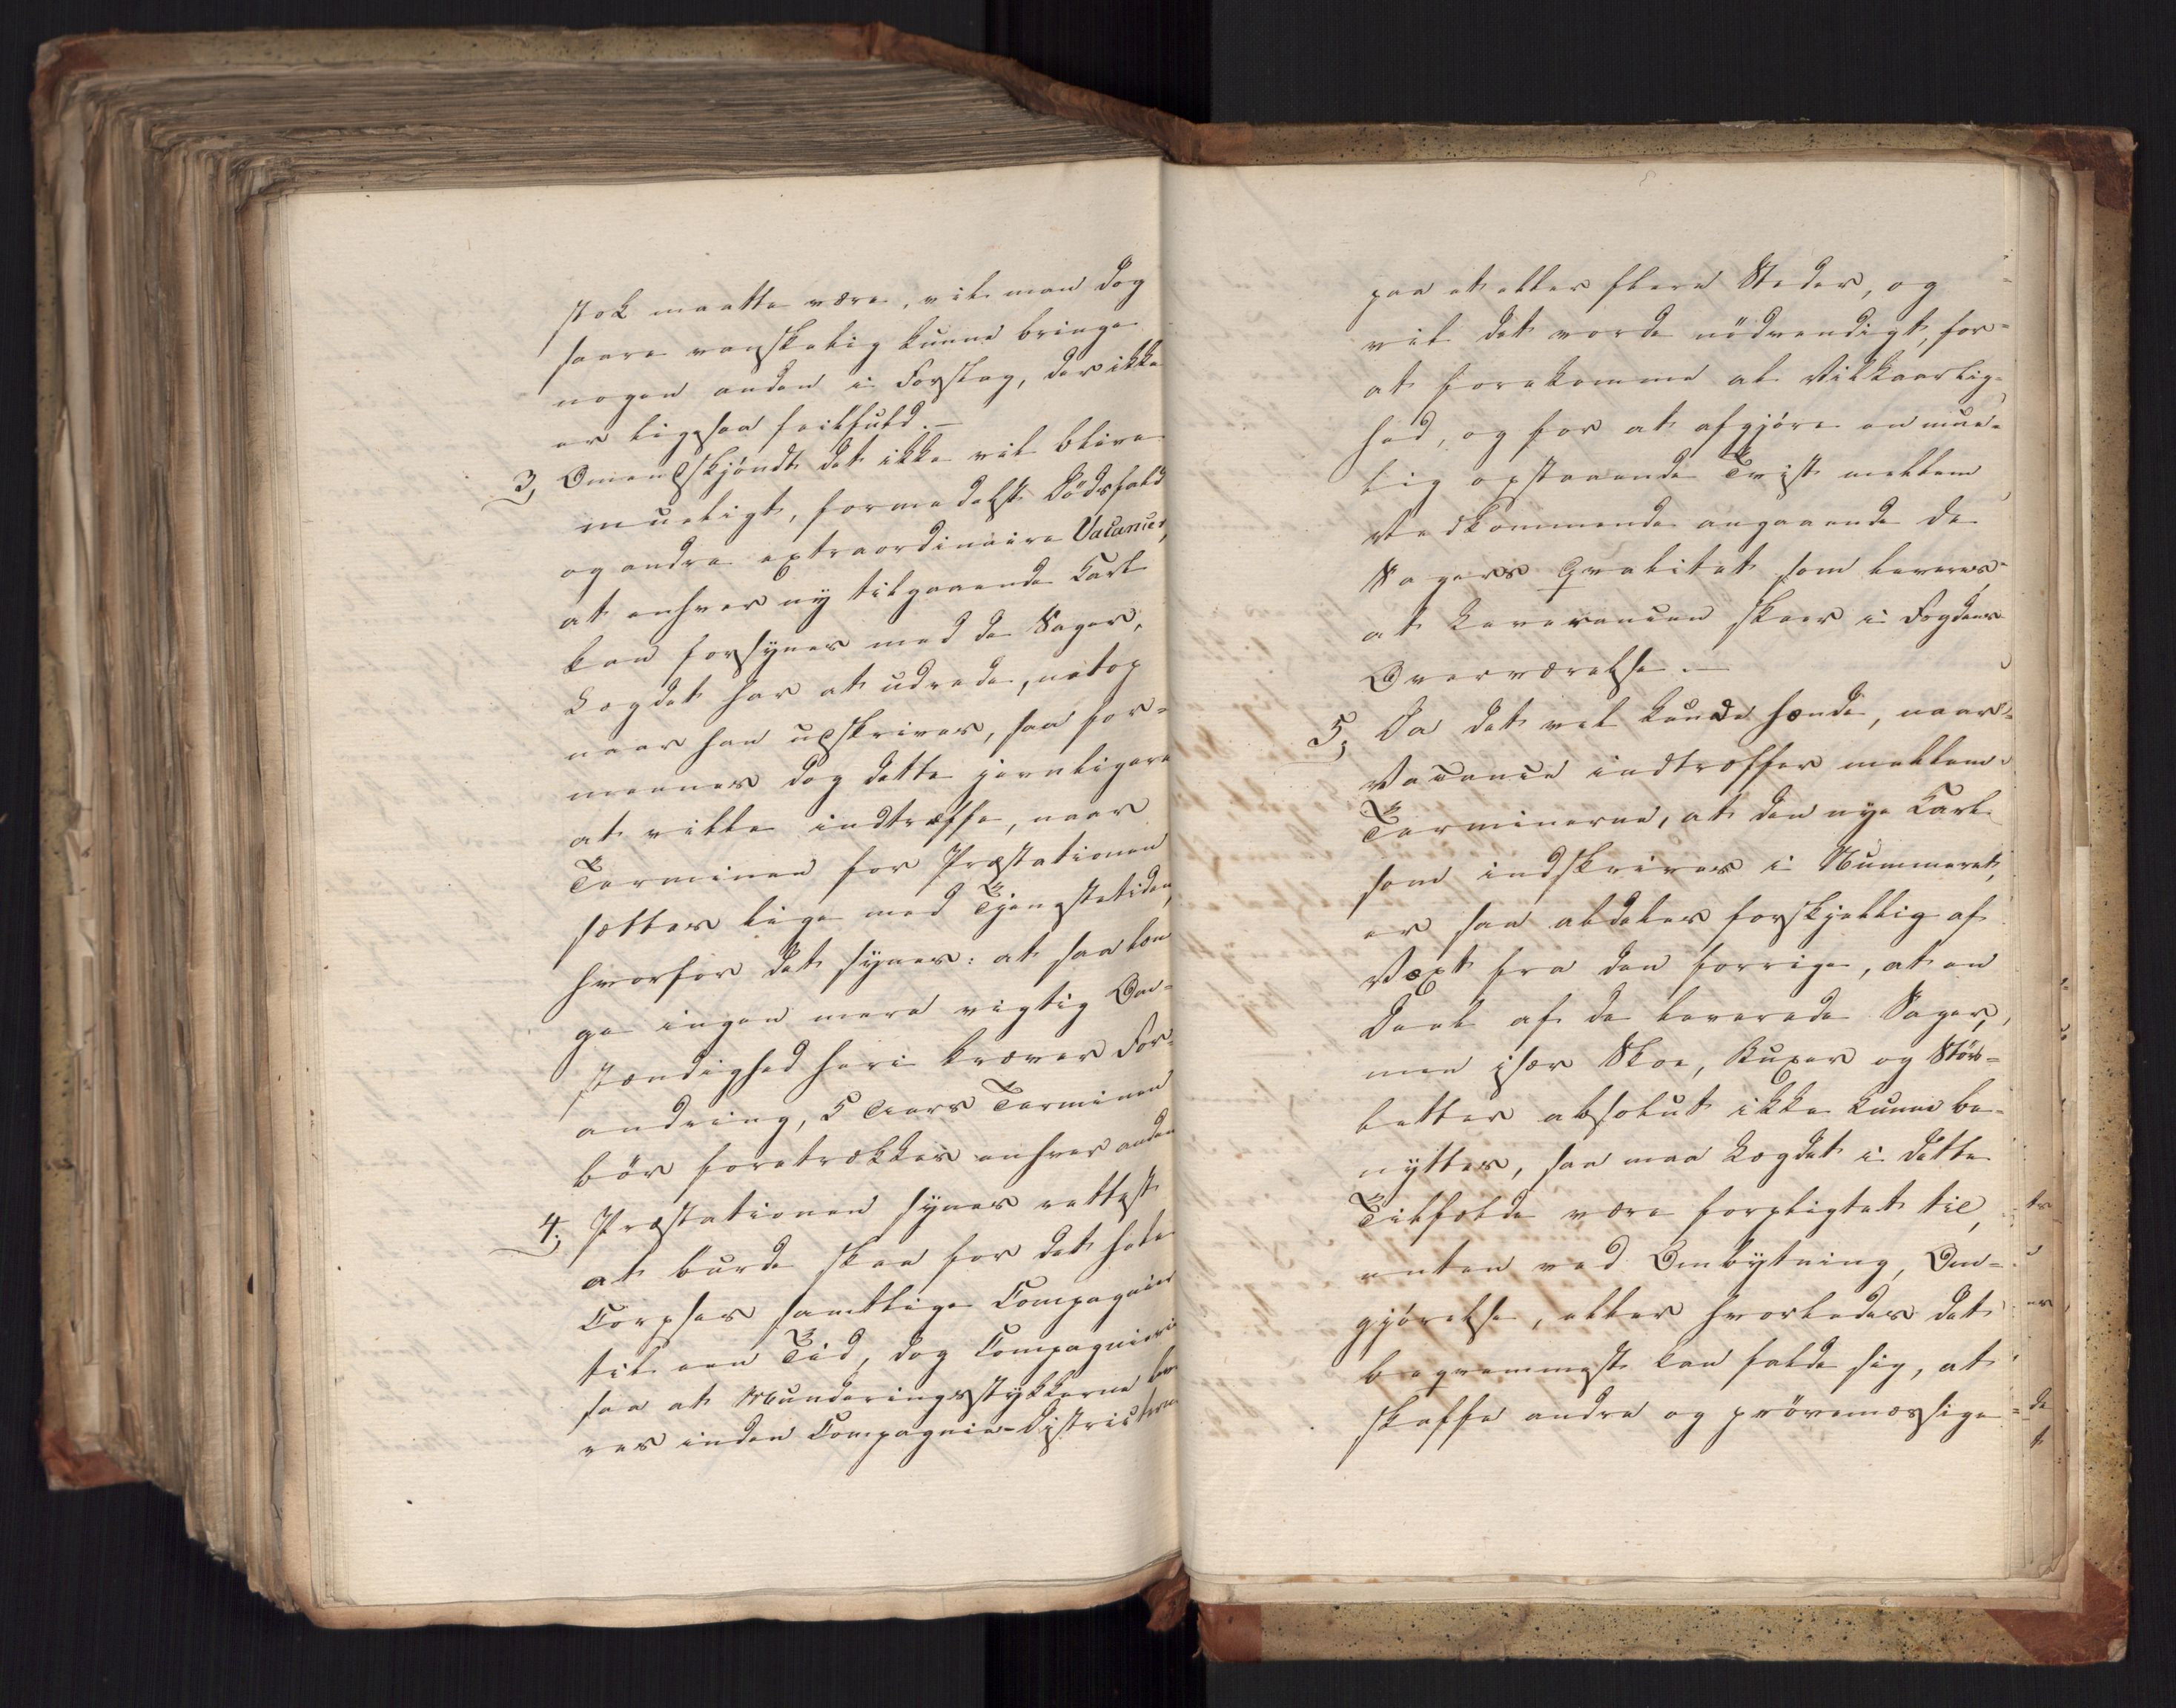 stok maatte være, vil man dog
saare vanskelig kunne bringe
nogen anden i Forslag, der ikke
er ligesaa feilfuld. –
3, Omendskjöndt det ikke vil blive
mueligt, formedelst Dödsfald
og andre extraordinaire Vacancer,
at enhver ny tilgaaende Karl
kan forsynes med de Sager,
Lægdet har at udrede, netop
naar han udskrives, saa for-
meenes dog dette jevnligere
at ville indtræffe, naar
Terminen for Præstationen
sættes lige med Tjenestetiden,
hvorfor det synes: at saa læn
ge ingen mere vigtig Om-
stændighed heri kræver For-
andring, 5 Aars Terminen
bör foretrækkes enhver anden
4, Præstationen synes rettest
at burde skee for det hele
Corpses samtlige Compagnier
til een Tid, dog Compagnievis
saa at Munderingsstykkerne leve
res inden Compagnie-Districterne
paa et eller flere Steder, og
vil det vorde nödvendigt, for-
at forekomme al Vilkaarlig-
hed, og for at afgjöre en mue-
lig opstaaende Tvist mellem
Vedkommende angaaende de
Sagers Qvalitet som leveres
at Leverancen skeer i Fogdens
Overværelse. –
5, Da det vel kunde hænde, naar
Vacance indtræffer mellem
Terminerne, at den nye Karl
som indskrives i Nummeret,
er saa aldeles forskjellig af
Væxt fra den forrige, at en
Deel af de leverede Sager,
men især Skoe, Buxer og Stöv-
letter absolut ikke kunne be-
nyttes, saa maa Lægdet i dette
Tilfælde være forpligtet til,
enten ved Ombytning, Om-
gjörelse, eller hvorledes det
beqvemmest kan falde sig, at
skaffe andre og prövemæssige